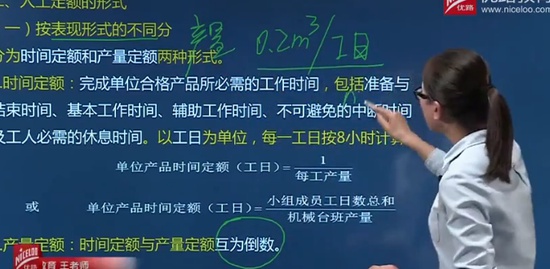 优路
www.niceloo.com
二、人工定额的形式
一)按表现形式的不同分
分为时间定额和产量定额两种形式。
0.2m³/工日
.时间定额:完成单位合格产品所必需的工作时间,包括准备与
结束时间、基本工作时间、辅助工作时间、不可避免的中断时间
及工人必需的休息时间。以工日为单位,每一工日按8小时计算
单位产品时间定额(工日)=1/每工产量
或 单位产品时间定额(工日)=小组成员工日数总和/机械台班产量
.产量定额:时间定额与产量定额互为倒数。
NICELOO
优路
教育 王老师